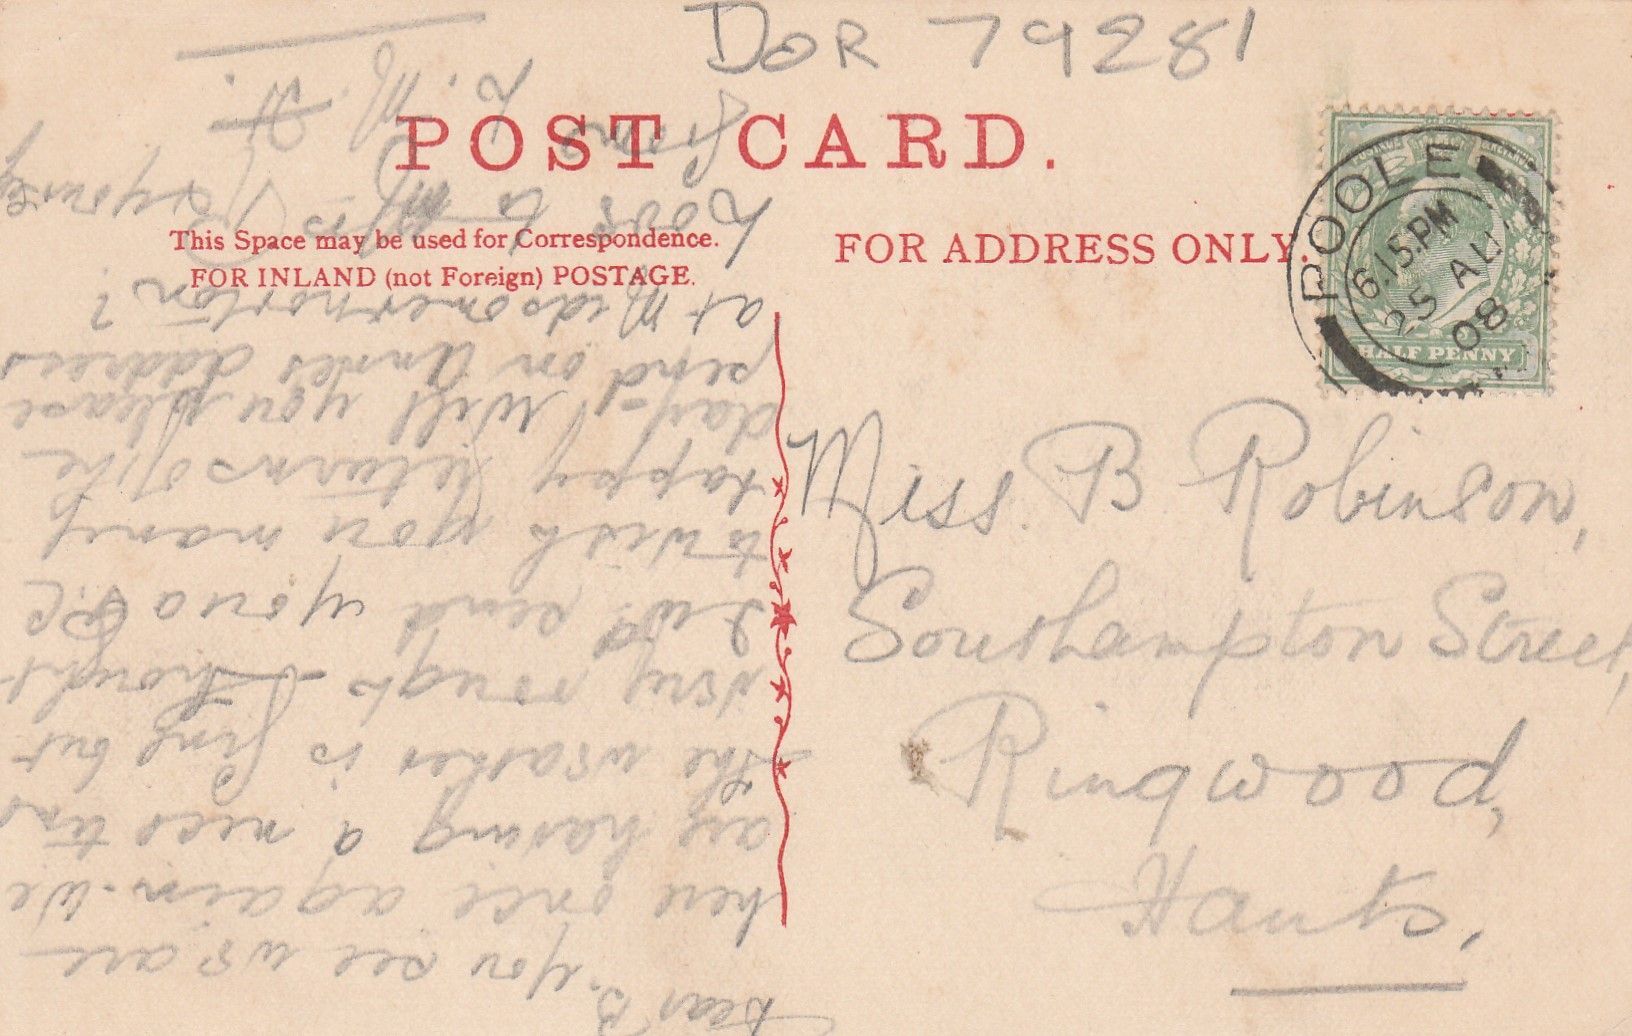 DOR 79281
POST CARD.
This Space may be used for Correspondence.
FOR INLAND (not Foreign) POSTAGE.
FOR ADDRESS ONLY.
POOLE
6.15.PM
25 AU
08
HALF PENNY
Miss. B Robinson,
Southampton Street,
Ringwood,
Hants.
Dear B.
You see we are
here once again. We
are having a nice time
the weather is fine but
very rough. I thought
I wd send you a P.C
to wish you many
happy returns of the
day. Will you please
send on Annie's address
at Midsomernorton?
Love to Mrs R & yourself
from
L. M. H.